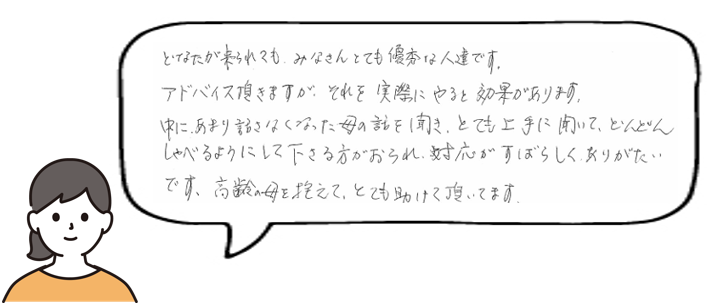 どなたが来られても、みなさんとても優秀な人達です。
アドバイス頂きますが、それを実際にやると効果があります。
中に、あまり話さなくなった母の話を聞き、とても上手に聞いて、どんどん
しゃべるようにして下さる方がおられ、対応がすばらしく、ありがたい
です。高齢の母を抱えて、とても助けて頂いてます。